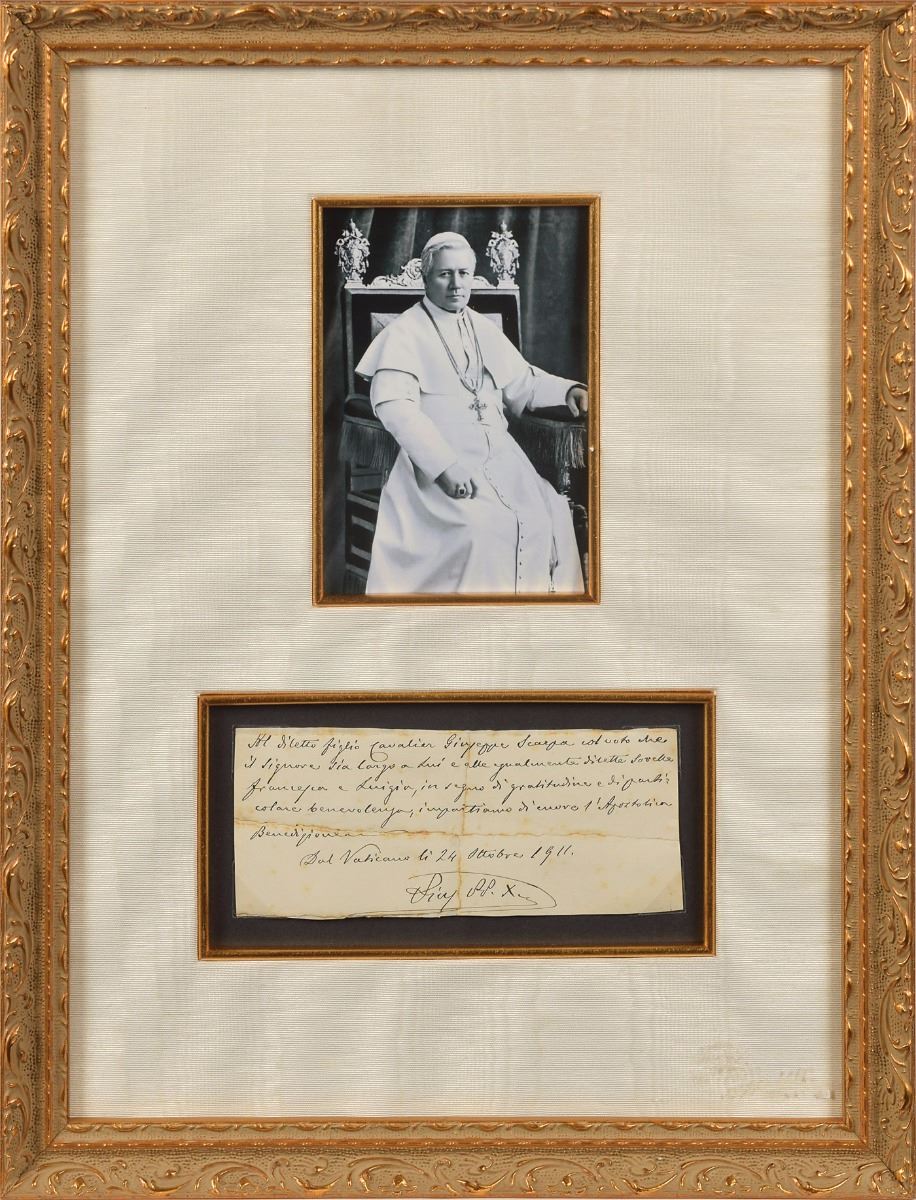 Al diletto figlio Cavalier Giuseppe Scarpa col voto che
il Signore sia largo a Lui e alle egualmente dilette sorelle
Francesca e Luigia, in segno di gratitudine e di parti-
colare benevolenza, impartiamo di cuore l'Apostolica
Benedizione
Dal Vaticano li 24 Ottobre 1911.
Pius PP. X